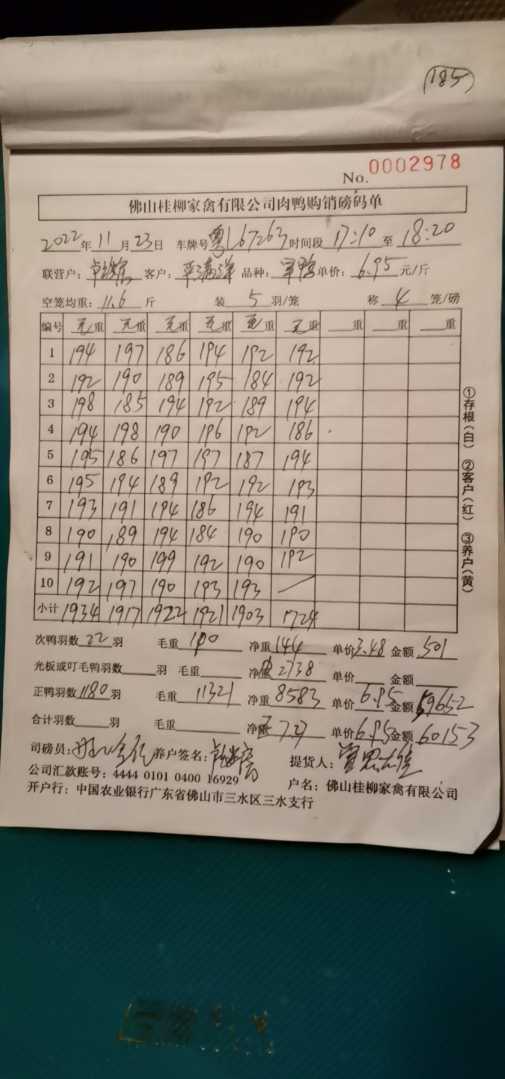 185
No. 0002978
佛山桂柳家禽有限公司肉鸭购销磅码单
2022年11月23日 车牌号粤L67263时间段17:10至18:20
联营户: 客户: 品种: 单价: 6.95元/斤
空笼均重: 11.6斤 装5羽/笼 称4笼/磅
编号 毛重 毛重 毛重 毛重 毛重 毛重 重 重 重
1 194 197 186 194 192 192
2 192 190 189 195 184 192
3 198 185 194 192 189 194
4 194 198 190 196 192 186
5 195 186 197 197 187 194
6 195 194 189 192 192 193
7 193 191 194 186 194 191
8 190 189 194 184 190 190
9 191 190 199 192 190 192
10 192 197 190 193 193
小计 1934 1917 1922 1921 1903 1724
①存根(白) ②客户(红) ③养户(黄)
次鸭羽数22羽 毛重190 净重144 单价3.48 金额501
光板或叮毛鸭羽数羽 毛重 净重2738 单价 金额
正鸭羽数1180羽 毛重11321 净重8583 单价6.95 金额59652
合计羽数羽 毛重 净重 单价6.95 金额60153
司磅员: 养户签名: 提货人:
公司汇款账号: 4444 0101 0400 16929 户名: 佛山桂柳家禽有限公司
开户行: 中国农业银行广东省佛山市三水区三水支行